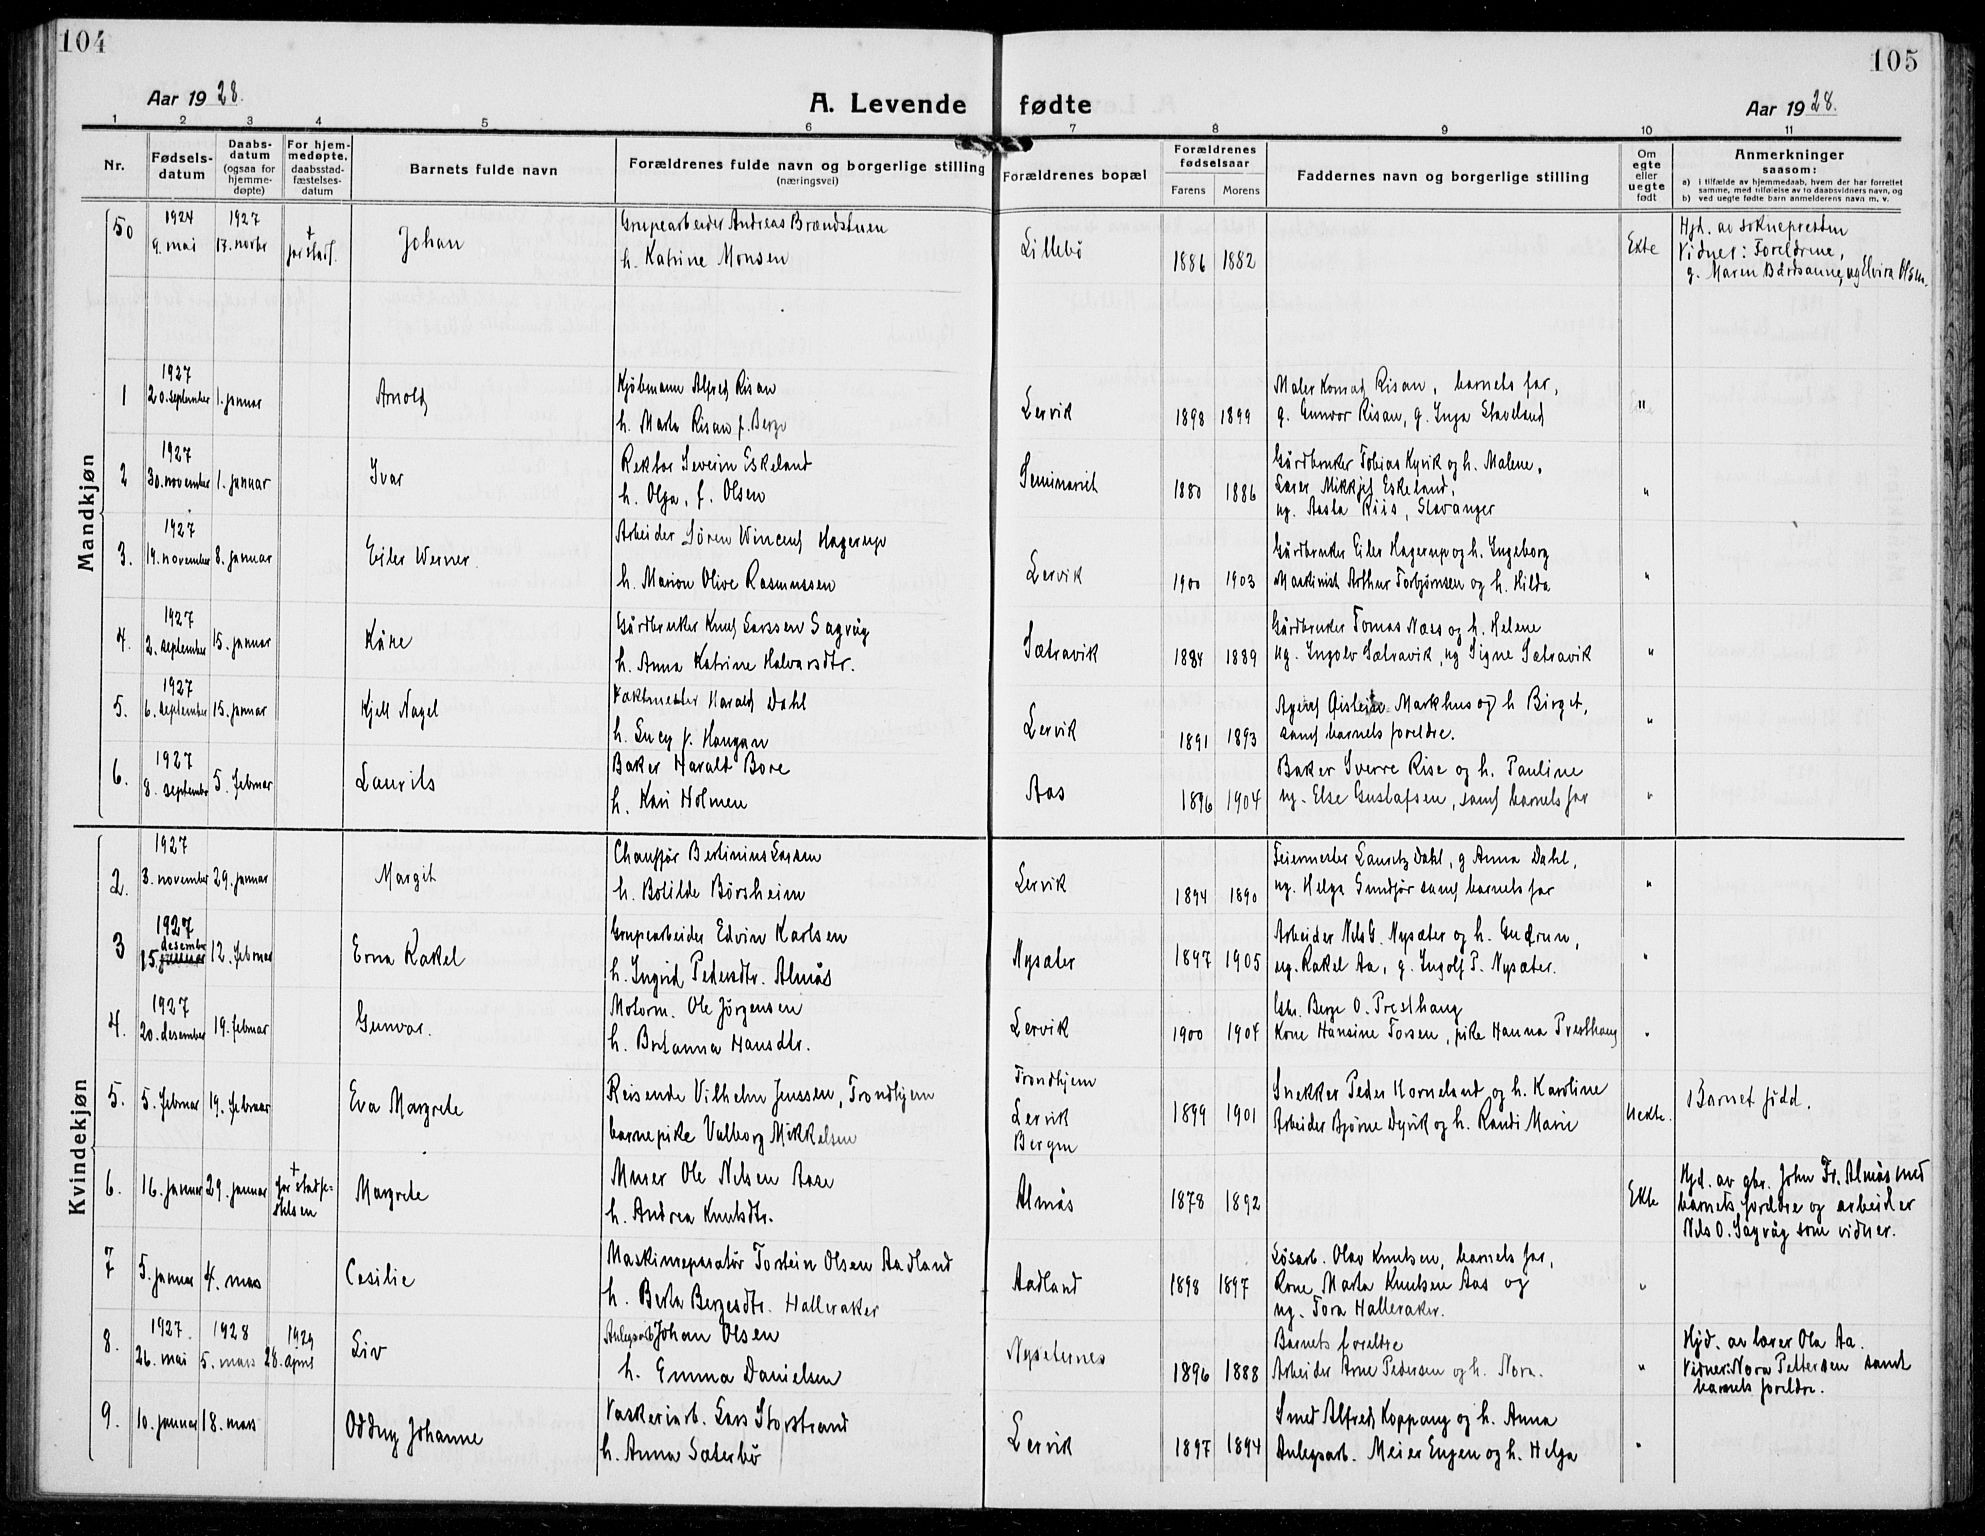 104
105
Aar 1928.
A. Levende fødte
Aar 1928.
1 2 3 4 5 6 7 8 9 10 11
Nr.
Fødsels-
datum
Daabs-
datum
(ogsaa for
hjemme-
døpte)
For hjem-
medøpte,
daabsstad-
fæstelses-
datum
Barnets fulde navn
Forældrenes fulde navn og borgerlige stilling
(næringsvei)
Forældrenes bopæl
Forældrenes
fødselsaar
Farens Morens
Faddernes navn og borgerlige stilling
Om
egte
eller
uegte
født
Anmerkninger
saasom:
a) i tilfælde av hjemmedaab, hvem der har forrettet
samme, med tilføielse av to daabsvidners navn, og
b) ved uegte fødte barn anmelderens navn m. v.
Mandkjøn
50
1924
9. mai
1927
17. novbr
+
før stadf.
Johan
Grupearbeider Andreas Brændstuen
h. Katrine Monsen
Lillebø
1886 1882
Ekte
Hjd. av soknepresten
Vidner: Foreldrene,
g. Maren Bårdsaune, ug Elvira Olsen.
1
1927
20. september 1. januar
Arnold
Kjøbmann Alfred Risan
h. Marta Risan f. Berge
Lervik
1898 1899
Maler Konrad Risan, barnets far,
g. Gunvor Risan, g. Inga Staveland
"
2
1927
30. november 1. januar
Ivar
Rektor Severin Eskeland
h. Olga, f. Olsen
Seminariet
1880 1886
Gårdbruker Tobias Kyvik og h. Malene,
Lærer Mikkjel Eskeland,
ug. Aasta Riis, Stavanger
"
3.
1927
14. november 8. januar
Eiler Werner
Arbeider Søren Wincent Hagerup
h. Marion Olive Rasmussen
Lervik
1900 1903
Gårdbruker Eiler Hagerup og h. Ingeborg
Maskinist Arthur Torbjørnsen og h. Hilda
"
4.
1927
2. september 15. januar
Kåre
Gårdbruker Knut Larssen Sagvåg
h. Anna Katrine Halvarsdtr.
Sætravik
1884 1889
Gårdbruker Tomas Næss og h. Helene
ug. Ingolv Sætravik, ug Signe Sætravik
"
5.
1927
6. september 15. januar
Kjell Nagel
Vaktmester Harald Dahl
h. Lucy f. Haugan
Lervik
1891 1893
Agent Øistein Markhus og h Birget,
samt barnets foreldre.
"
6.
1927
8. septembr 5. februar
Laurits
Baker Haralt Bore
h. Kari Holmen
Aas
1896 1904
Baker Sverre Rise og h. Pauline
ug. Else Gustafsen, samt barnets far
"
Kvindekjøn
2.
1927
3. november 29. januar
Margit
Chauffør Bertinius Larsen
h. Botilde Børsheim
Lervik
1894 1890
Feiermester Lauritz Dahl, g Anna Dahl,
ug. Helga Gundfør samt barnets far
"
3
1927
desembr
15. januar 12. februar
Erna Rakel
Grupearbeider Edvin Karlsen
h. Ingrid Pedersdtr. Almås
Nysæter
1897 1905
Arbeider Nils G. Nysæter og h. Gudrun,
ug. Rakel Aa, g. Ingolf P. Nysæter.
"
4.
1927
20. desember 19. februar
Gunvor.
Motorm. Ole Jørgensen
h. Bertanna Hansdtr.
Lervik
1900 1904
Gbr. Berge O. Presthaug
Kone Hansine Torsen, pike Hanna Presthaug
"
5.
5. februar 19. februar
Eva Margrete
Reisende Vilhelm Jenssen, Trondhjem
barnepike Valborg Mikkelsen
Trondhjem
Lervik
Bergen
1899 1901
Snekker Peder Horneland og h. Karoline
Arbeider Bjørne Dyvik og h. Randi Marie
Uekte.
Barnet født.
6.
16. januar 29. januar
+
før stadfe-
stelsen
Margrete
Murer Ole Nilsen Aase
h. Andrea Knutsdtr.
Almås
1878 1892
Ekte
Hjd. av gbr. John Fr. Almås med
barnets foreldre og arbeider
Nils O. Sagvåg som vidner.
7
5. januar 4. mars
Cesilie
Maskinreparatør Torstein Olsen Aadland
h. Berta Bergesdtr. Halleraker
Aadland
1898 1897
Løsarb. Olav Knutsen, barnets far,
Kone Marta Knutsen Aas og
ug. Tora Halleraker.
"
8.
1927.
26. mai
1928
5. mars
1929
28. april
Liv
Anlegsarb Johan Olsen
h. Emma Danielsen
Nyseternes
1896 1888
Barnets foreldre
Arbeider Arne Pedersen og h. Nora.
"
Hjd. av lærer Ola Aa.
Vidner: Nora Pettersen samt
barnets foreldre.
9.
10. januar 18. mars
Oddny Johanne
Vaskeriarb. Lars Storstrand
h. Anna Sæterbø
Lervik
1897 1894
Smed Alfred Koppang og h. Anna
Anlegsarb. Meier Engen og h. Helga
"